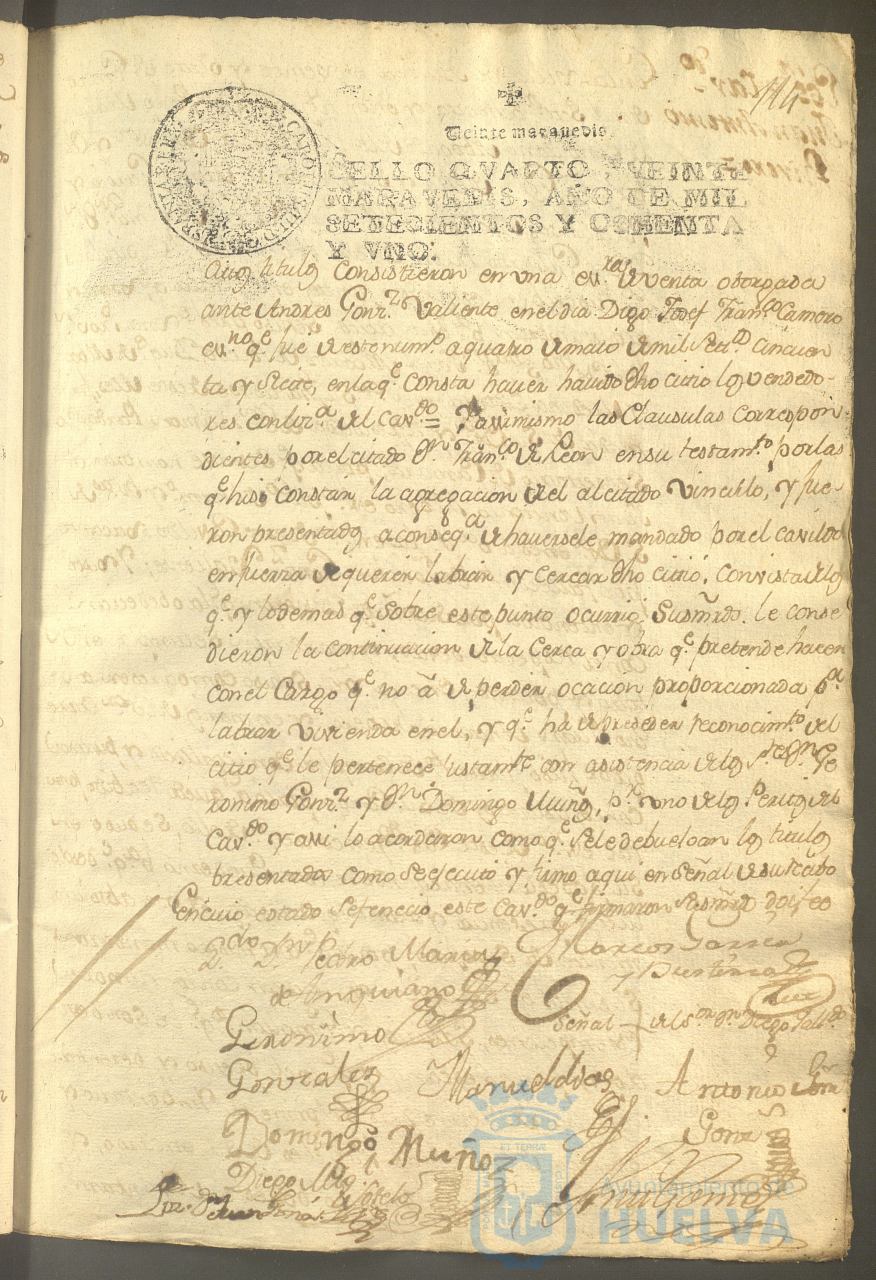 114
Veinte maravedis.
SELLO QVARTO, VEINTE
MARAVEDIS, AÑO DE MIL
SETECIENTOS Y OCHENTA
Y VNO.
titulos consistieron en una esc.ras de venta otorgada
ante Andres Gonz.z Valiente en el dia Digo Josef Fran.co Camero
es.no q.e fué de este num.o a quatro de maio de mil set.s cincuen
ta y Siete, en la q.e Consta haver havido dho citio los vendedo-
res con liz.a del Cav.do = Y asimismo las Clausulas Correspon-
dientes por el citado D.n Fran.co de Leon en su testam.to por las
q.e hiso constar la agregacion de el al citado Vinculo, y fue-
ron presentados a conseq.a de haversele mandado por el Cavildo
en fuerza de querer labrar y Cercar dho citio. Con vista de los
q.e y lo demas q.e Sobre este punto ocurrió: Sus mrds. le conse
dieron la continuacion de la Cerca y obra q.e pretende hacer
con el Cargo q.e no á de perder ocacion proporcionada p.a
labrar vivienda en el, y q.e ha de preseder reconocim.to del
citio q.e le pertenece justam.te con asistencia de los S.res D.n Ge
ronimo Gonz.z y D.n Domingo Muños, p.r uno de los Peritos del
Cav.do y assi lo acordaron como q.e se le debuelvan los titulos
presentados como se ejecutó y firmo aqui en Señal de su recibo
En cuio estado se fenecio este Cav.do q.e firmaron Sus mrds doi fee
L.do D.n Pedro Marcos
de Anguiano
Marcos Garcia
y
Señal del S.or D.n Diego Gall.do
Geronimo
Gonzalez
Manuel dias
Antonio
Gonz
Domingo Muñoz
Diego
Sotelo
ET TERRÆ
Ayuntamiento de
HUELVA